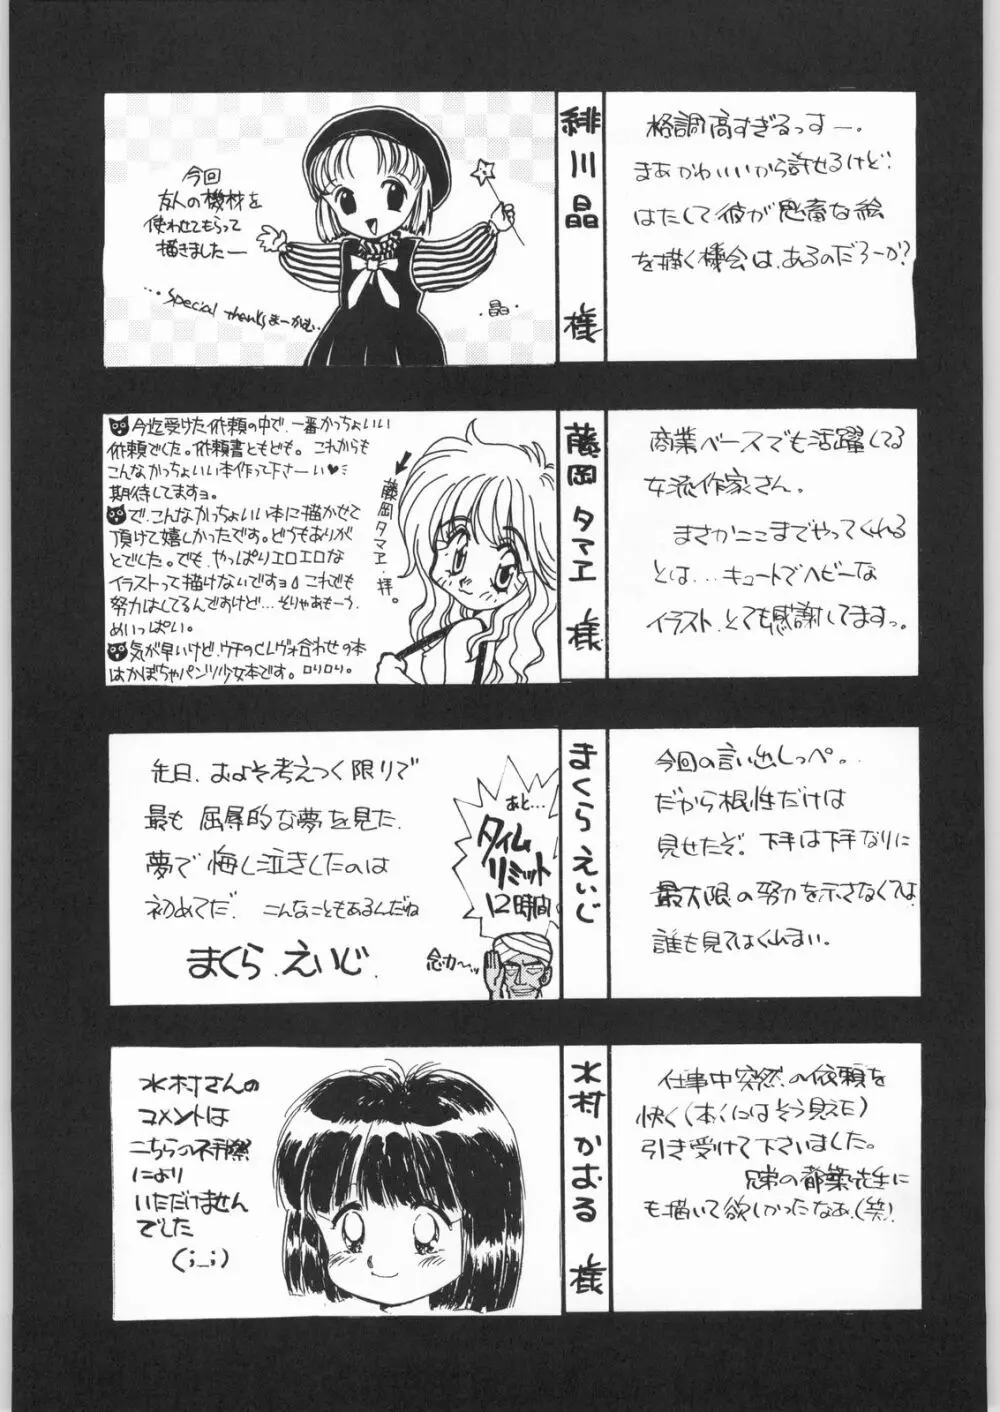 今回
友人の機材を
使わせてもらって
描きましたー
...Special thanksまーかむ.
.晶.
緋川晶 様
格調高すぎるっすー。
まあかわいいから許せるけど、
はたして彼が鬼畜な絵
を描く機会は、あるのだろーか?
今迄受けた依頼の中で、一番かっちょいい
依頼でした。依頼書ともども。これからも
こんなかっちょいい本作って下さーい♥
期待してますョ。
で、こんなかっちょいい本に描かせて
頂けて嬉しかったです。どうもありが
とでした。でも、やっぱりエロエロな
イラストって描けないですョ これでも
努力はしてるんですけど...そりゃあもーう、
めいっぱい。
気が早いけど、ウチのCレヴォ合わせの本
はかぼちゃパンツ少女本です。ロリロリ。
藤岡タマヱ・拝。
藤岡タマヱ 様
商業ベースでも活躍してる
女流作家さん。
まさかここまでやってくれる
とは...キュートでヘビーな
イラスト、とても感謝してますっ。
先日、およそ考えつく限りで
最も 屈辱的な夢を見た.
夢で 悔し泣きしたのは
初めてだ. こんなこともあるんだね
まくら えいじ.
あと...
タイム
リミット
12時間
念力〜ッ
まくらえいじ
今回の言い出しっぺ。
だから根性だけは
見せたぞ. 下手は下手なりに
最大限の努力を示さなくては
誰も見てはくれまい。
水村さんの
コメントは
こちらの不手際
により
いただけません
でした
(;_;)
水村かおる 様
仕事中突然の依頼を
快く(ボクにはそう見えた)
引き受けて下さいました。
兄弟の都築先生に
も描いて欲しかったなあ.(笑)